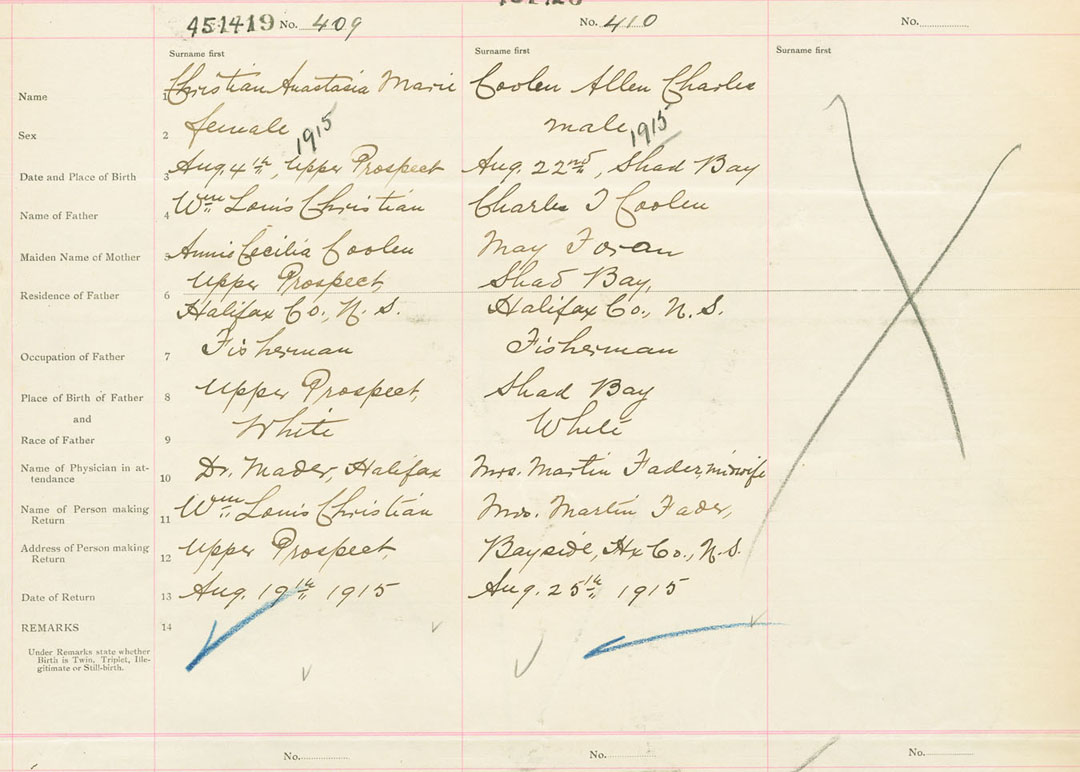 451419 No. 409
No. 410
No.
Surname first
Surname first
Surname first
Name 1 Christian Anastasia Marie Coolen Allen Charles
Sex 2 female male
1915 1915
Date and Place of Birth 3 Aug. 4th, Upper Prospect Aug. 22nd, Shad Bay
Name of Father 4 Wm Louis Christian Charles J Coolen
Maiden Name of Mother 5 Annie Cecilia Coolen May Foran
Upper Prospect, Shad Bay,
Residence of Father 6
Halifax Co., N. S. Halifax Co., N. S.
Occupation of Father 7 Fisherman Fisherman
Place of Birth of Father 8 Upper Prospect, Shad Bay
and
Race of Father 9 White White
Name of Physician in at-
tendance 10 Dr. Mader, Halifax Mrs. Martin Fader, midwife
Name of Person making
Return 11 Wm Louis Christian Mrs. Martin Fader,
Address of Person making
Return 12 Upper Prospect, Bayside, Hx Co., N. S.
Date of Return 13 Aug. 19th, 1915 Aug. 25th, 1915
REMARKS 14
Under Remarks state whether
Birth is Twin, Triplet, Ille-
gitimate or Still-birth.
No. No. No.